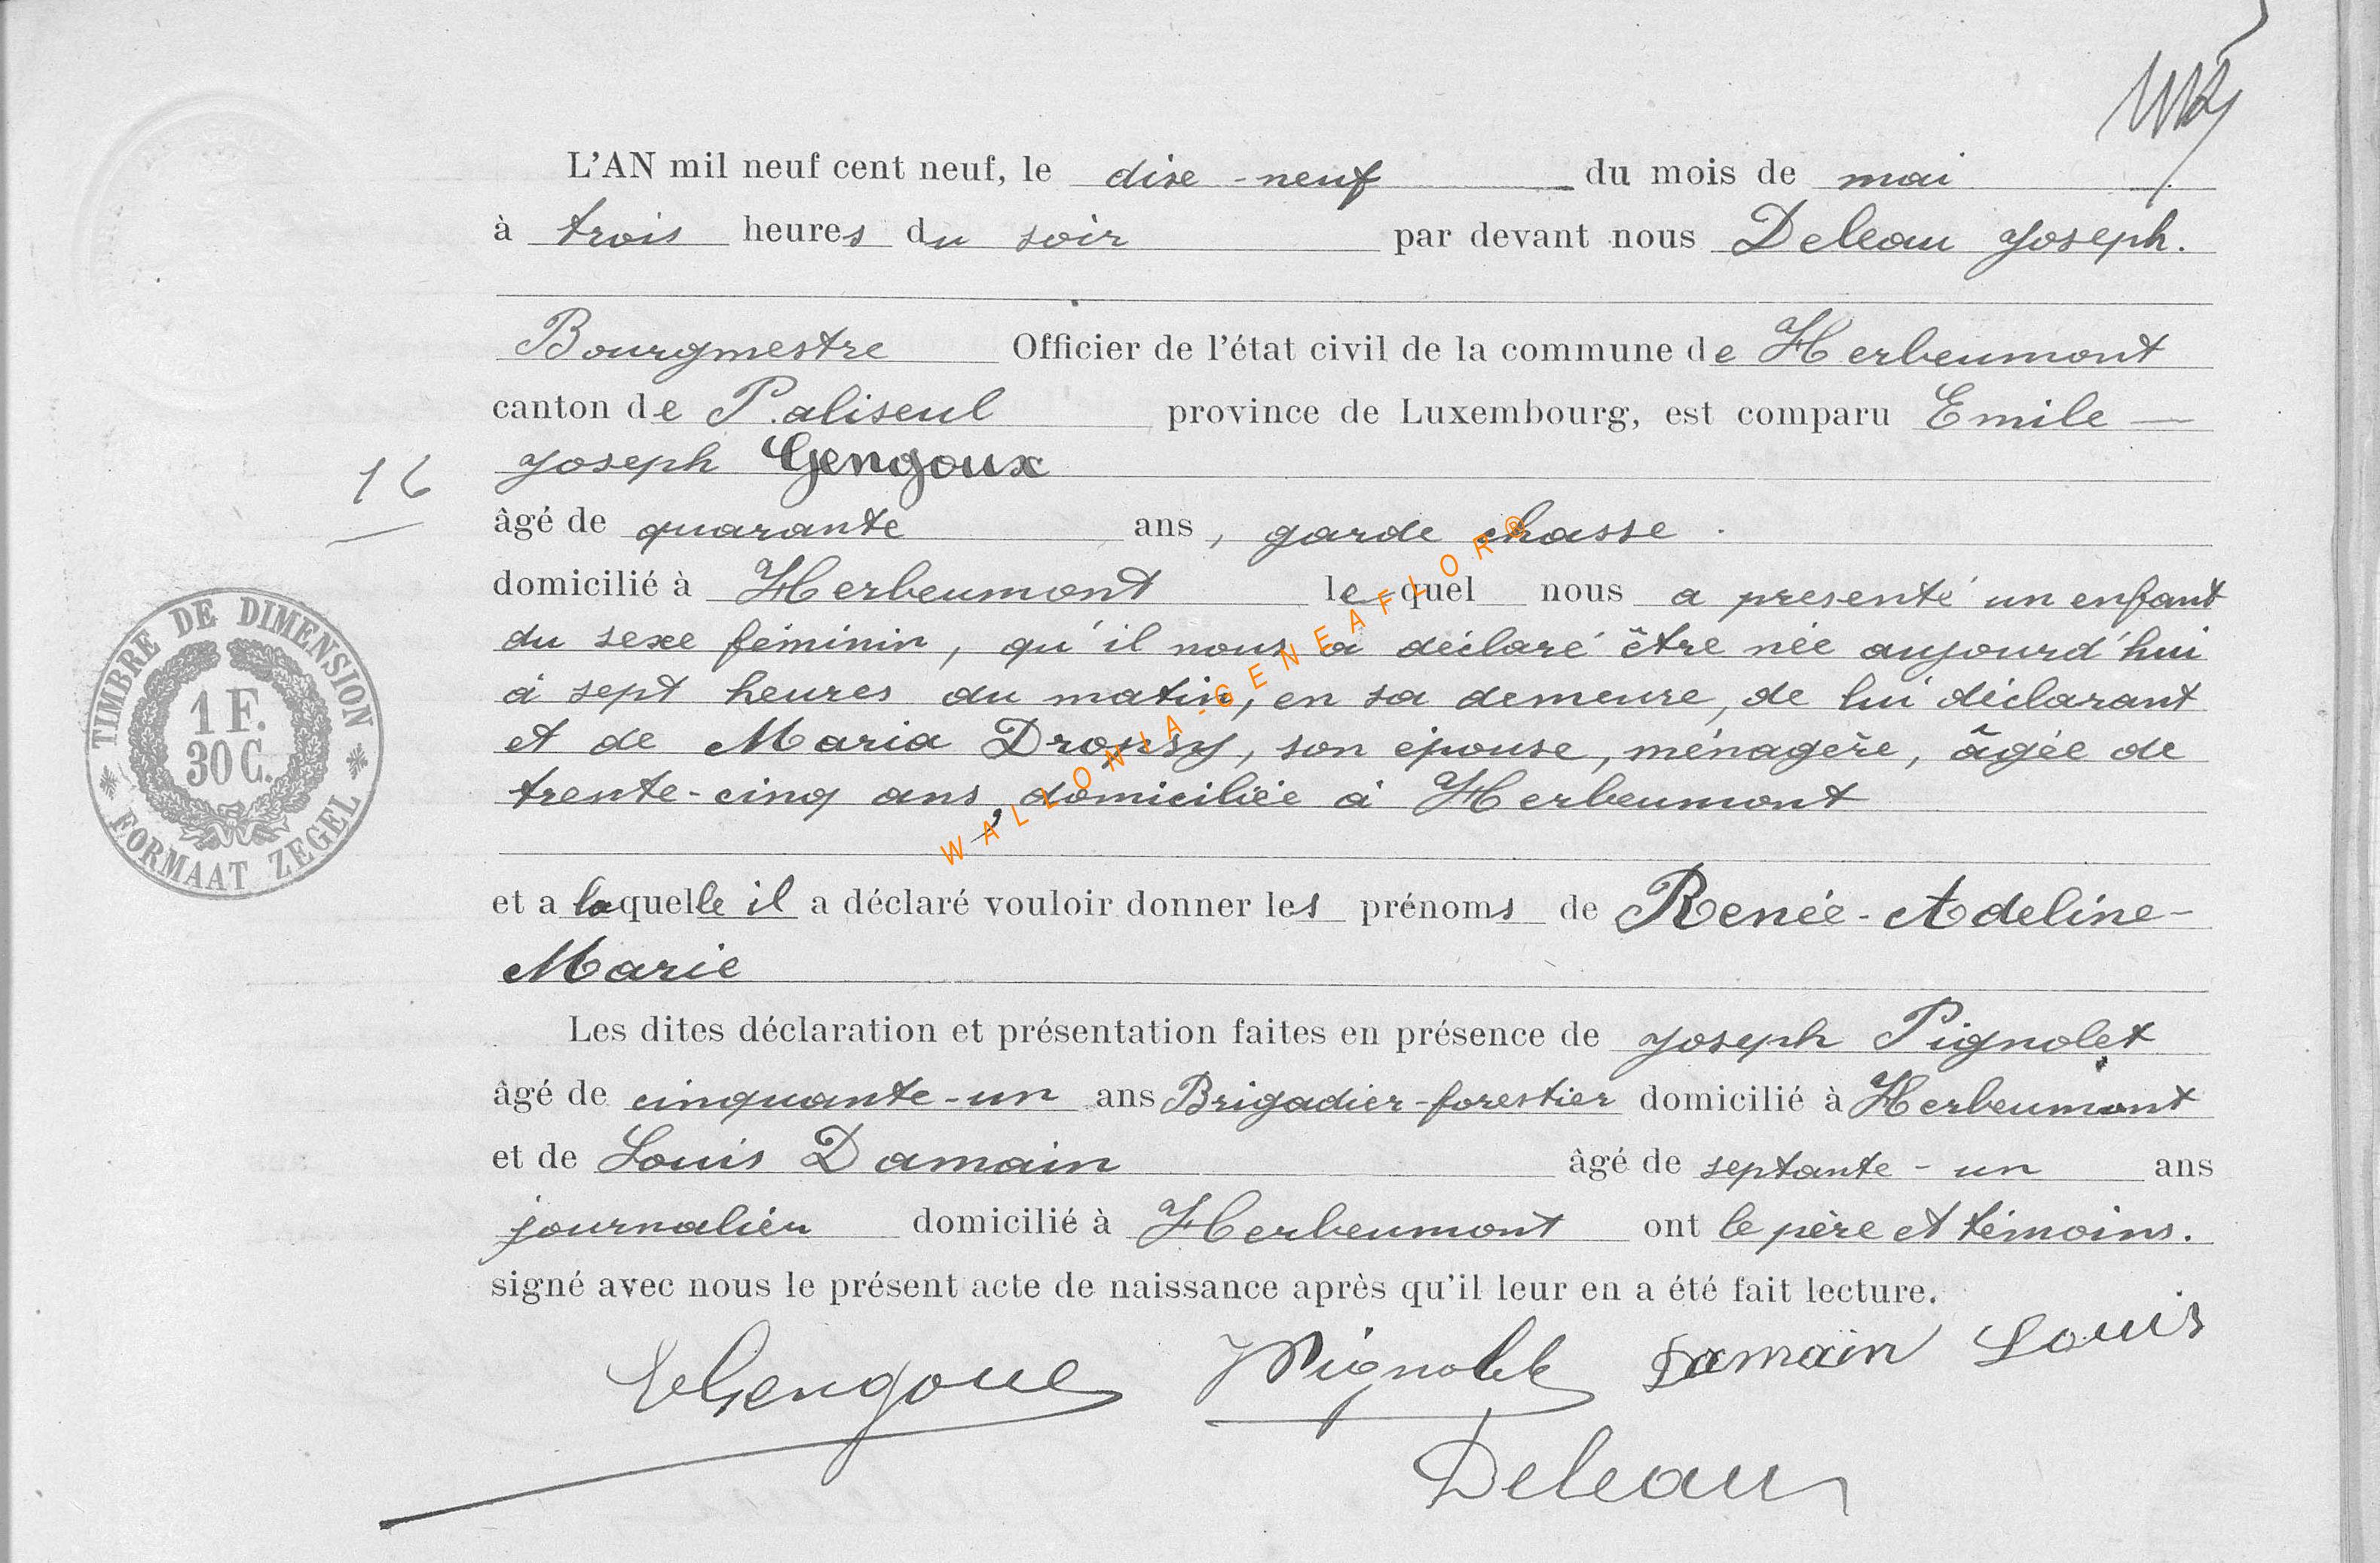 L'AN mil neuf cent neuf, le dixe-neuf du mois de mai
à trois heures du soir par devant nous Deleau Joseph.
Bourgmestre Officier de l'état civil de la commune de Herbeumont
canton de Paliseul province de Luxembourg, est comparu Emile-
Joseph Gengoux
16
âgé de quarante ans, garde chasse.
domicilié à Herbeumont lequel nous a présenté un enfant
du sexe féminin, qu'il nous a déclaré être née aujourd'hui
à sept heures du matin, en sa demeure, de lui déclarant
et de Maria Dropsy, son épouse, ménagère, âgée de
trente-cinq ans, domiciliée à Herbeumont
et a laquelle il a déclaré vouloir donner les prénoms de Renée-Adeline-
Marie
Les dites déclaration et présentation faites en présence de Joseph Pignolet
âgé de cinquante-un ans Brigadier-forestier domicilié à Herbeumont
et de Louis Damain âgé de septante-un ans
journalier domicilié à Herbeumont ont le père et témoins.
signé avec nous le présent acte de naissance après qu'il leur en a été fait lecture.
EGengoux JPignolet Damain Louis
Deleau
TIMBRE DE DIMENSION
1 F.
30 C.
FORMAAT ZEGEL
WALLONIA-GENEAFLOR®